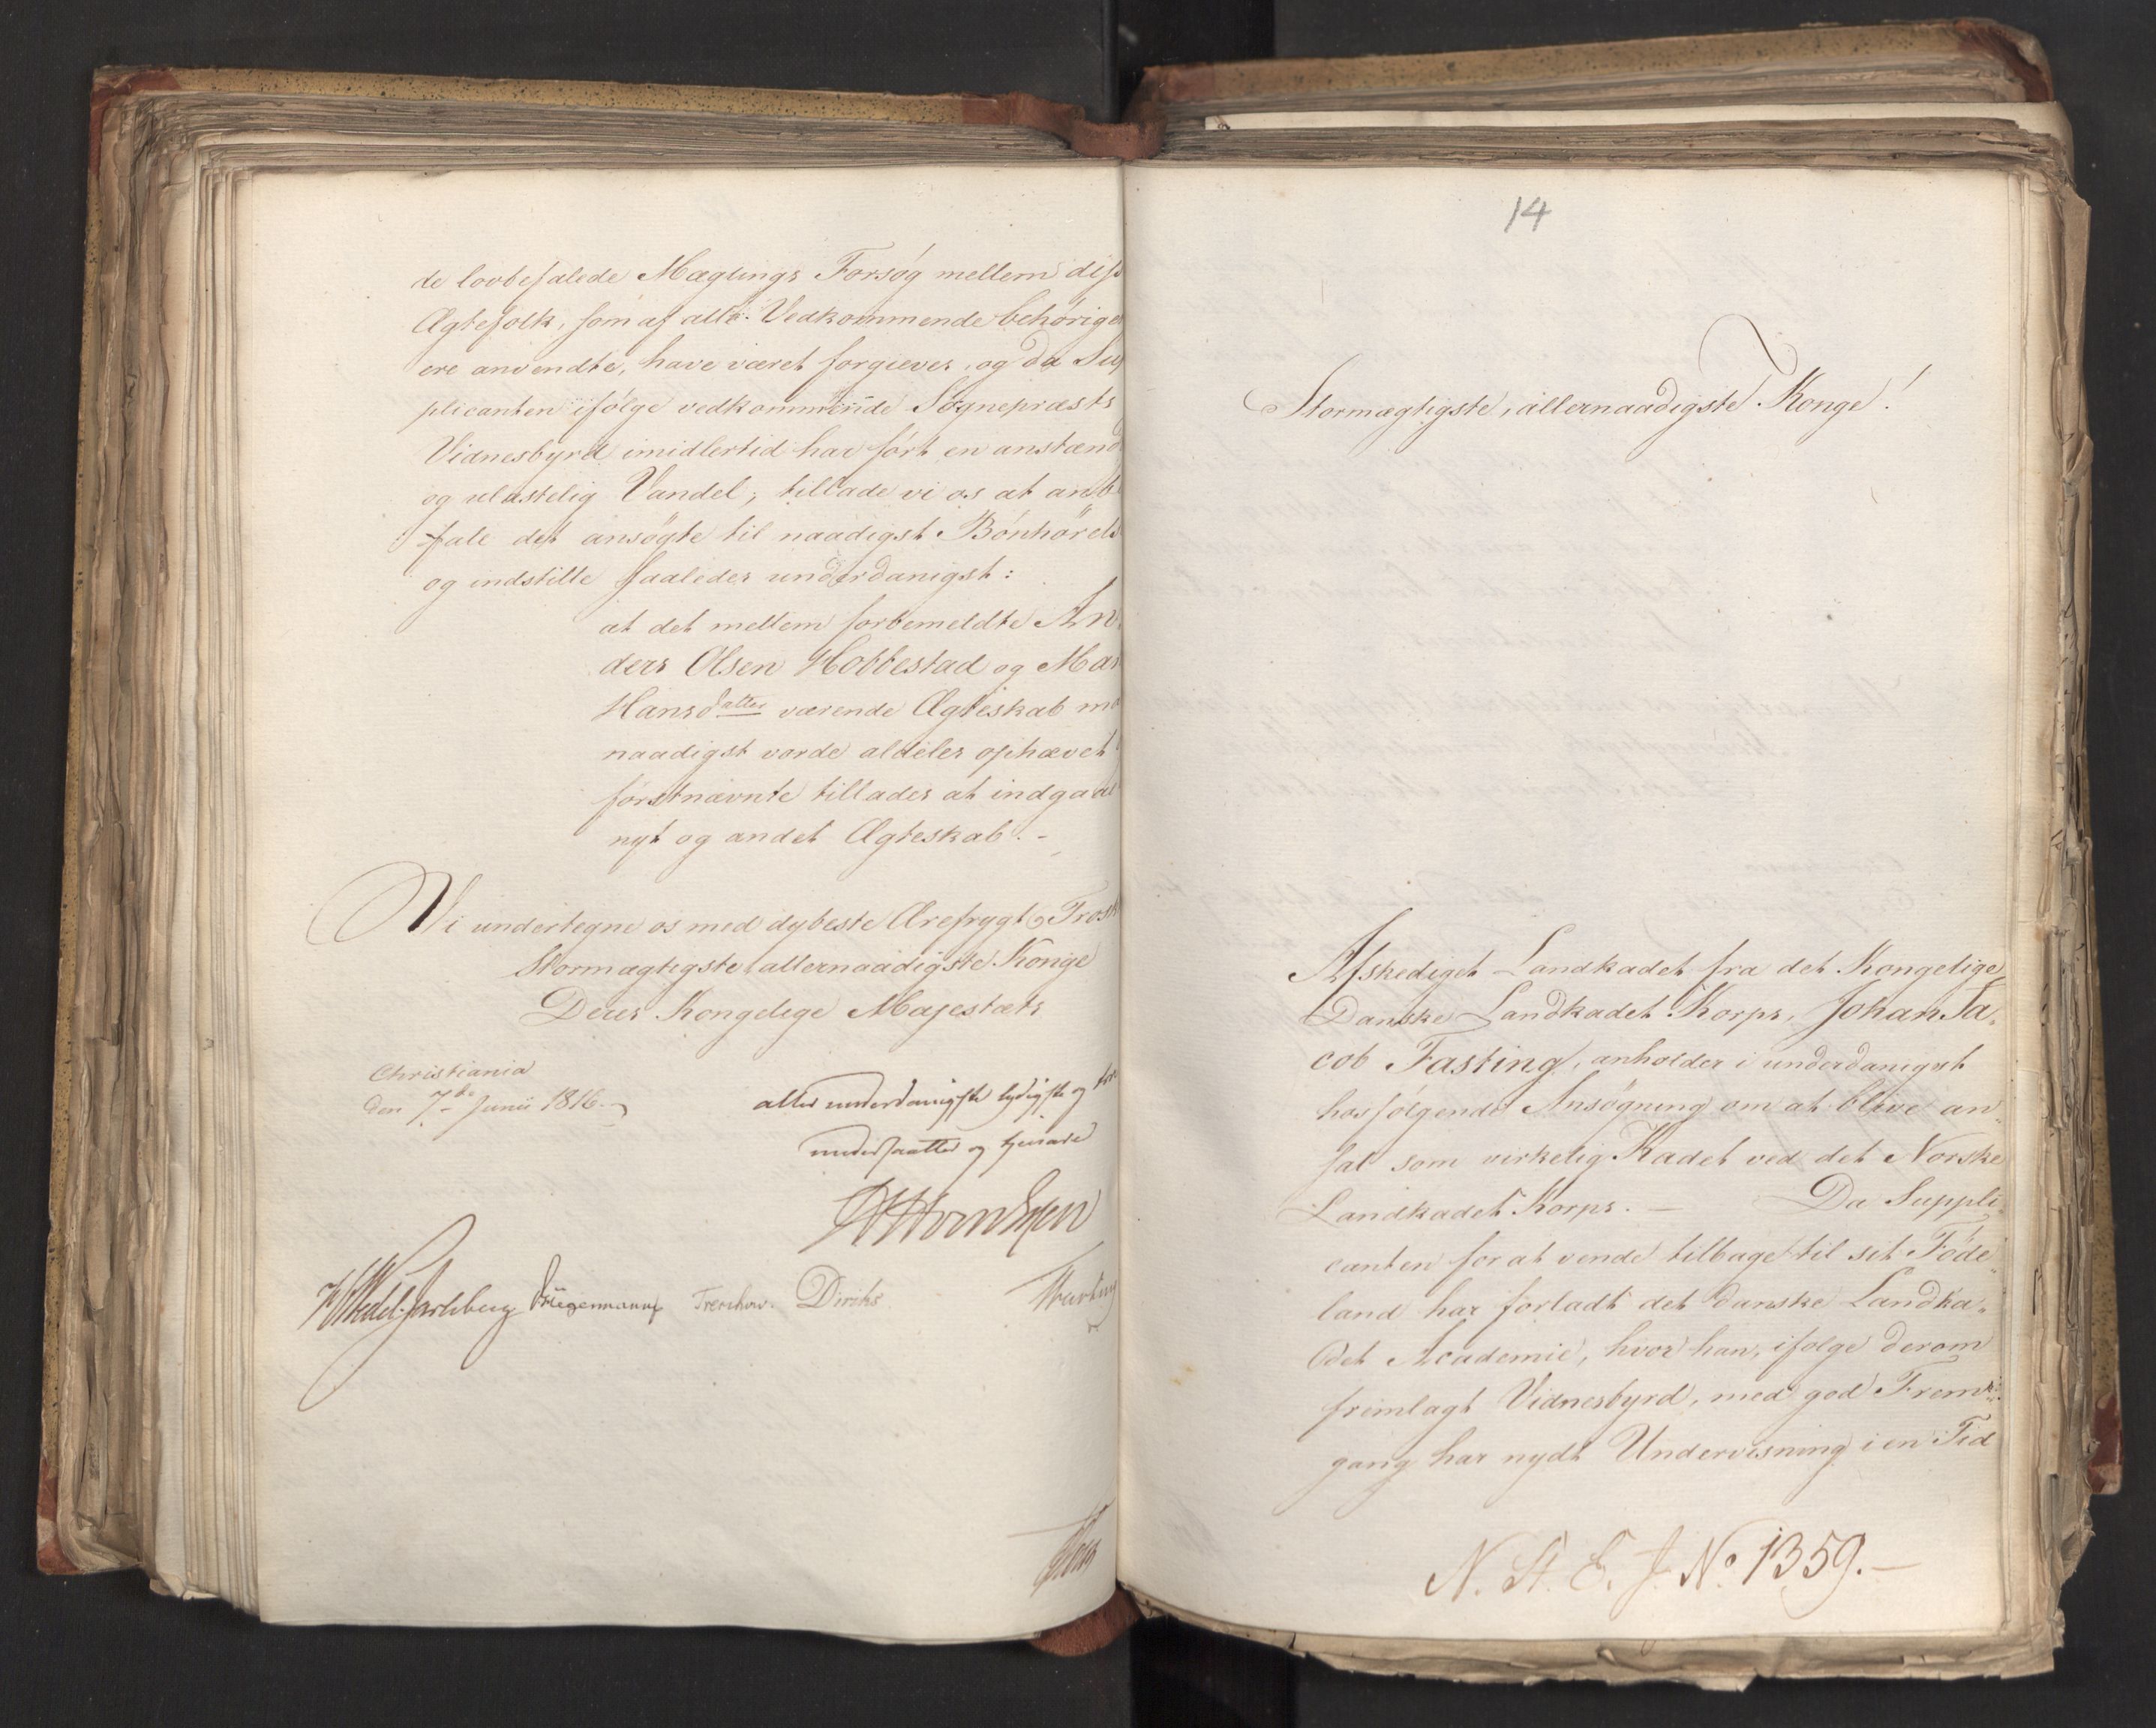 de lovbefalede Mæglings Forsøg mellem disse
Ægtefolk, som af alle Vedkommende behørigen
ere anvendte, have været forgieves, og da Sup
plicanten ifølge vedkommende Sognepræsts
Vidnesbyrd imidlertid har ført en anstænd
og ulastelig Vandel; tillade vi os at anbe
fale det ansøgte til naadigst Bønhørelse
og indstille saaledes underdanigst:
at det mellem forbemeldte An
ders Olsen Hobbestad og Mar
Hansdatter værende Ægteskab maa
naadigst vorde aldeles ophævet
førstnævnte tillades at indgaae
nyt og andet Ægteskab. -
Vi undertegne os med dybeste Ærefrygt og Trosk
Stormægtigste, allernaadigste Konge
Deres Kongelige Majestæts
Christiania
den 7de Junii 1816.
allerunderdanigste lydigste og tro
undersaatter og tjenere
Wedel-Jarlsberg Krieger Treschow. Diriks
14
Stormægtigste, allernaadigste Konge!
Afskediget Landkadet fra det Kongelige
Danske Landkadet Korps, Johan Ja„
cob Fasting, anholder i underdanigst
hosfølgende Ansøgning om at blive an„
sat som virkelig Kadet ved det Norske
Landkadet Korps. — Da Suppli„
canten for at vende tilbage til sit Føde„
land har forladt det danske Landka„
det Academie, hvor han, ifølge derom
fremlagt Vidnesbyrd, med god Frem„
gang har nydt Underviisning i en Tid
N. St. E. J. No 1359. —